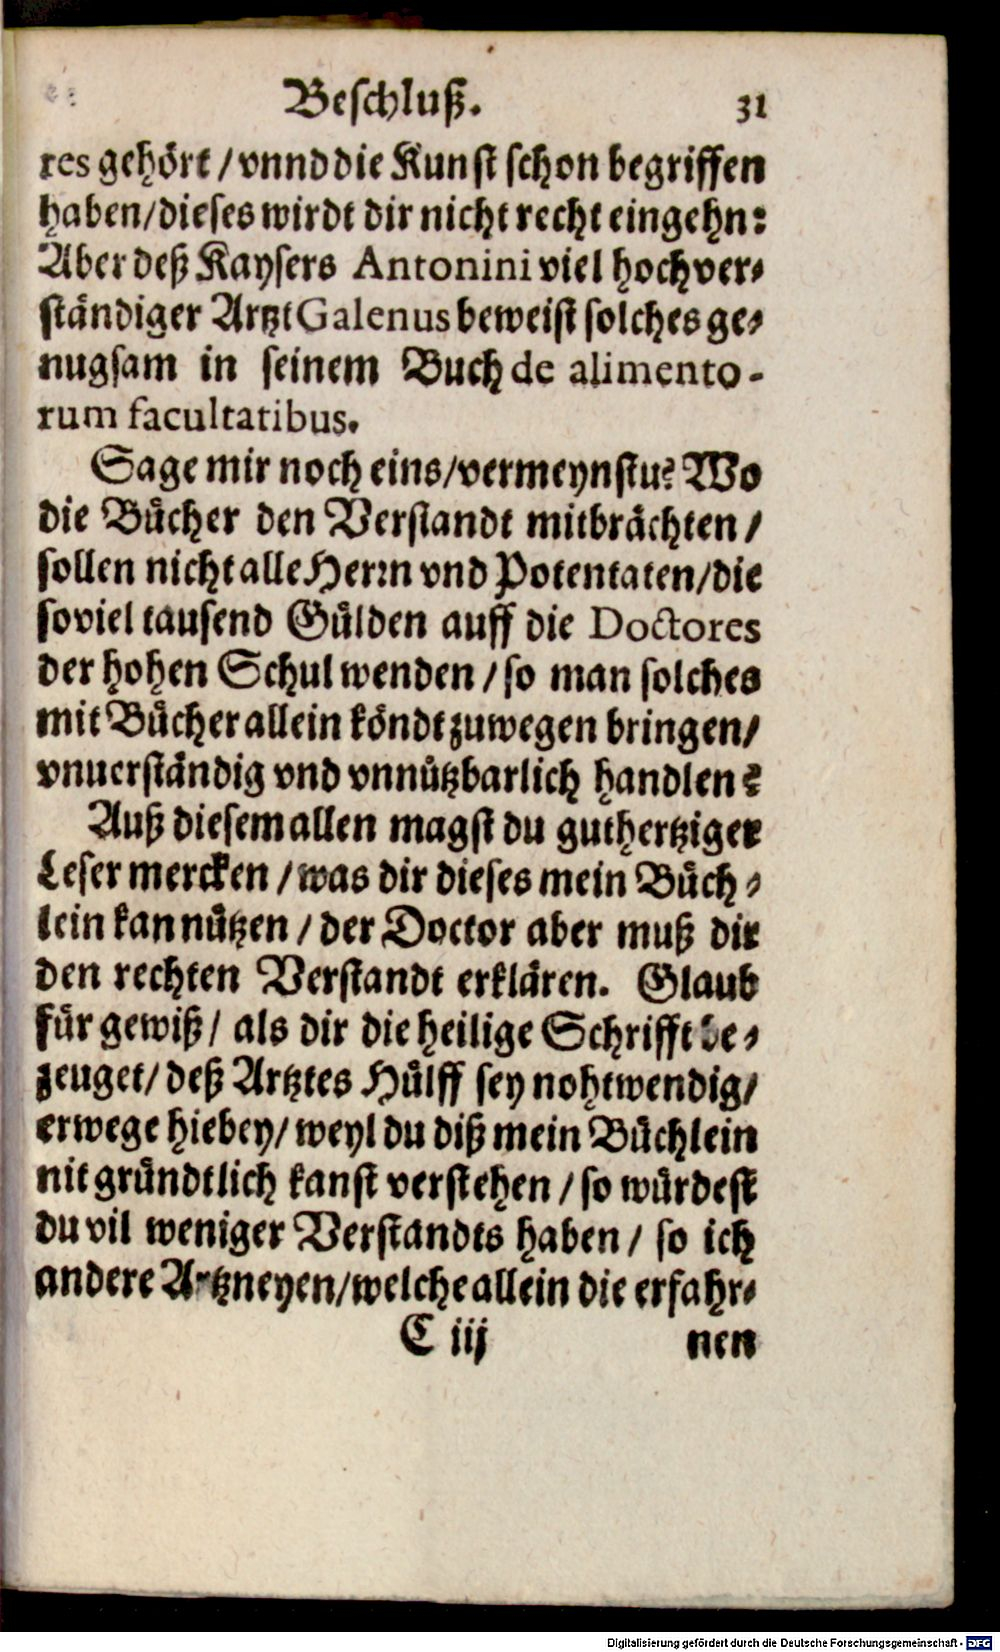 Beschluß. 31
res gehört / vnnd die Kunst schon begriffen
haben / dieses wirdt dir nicht recht eingehn:
Aber deß Kaysers Antonini viel hochver⸗
ständiger Artzt Galenus beweist solches ge⸗
nugsam in seinem Buch de alimento-
rum facultatibus.
Sage mir noch eins / vermeynstu? Wo
die Bücher den Verstandt mitbrächten /
sollen nicht alle Herrn vnd Potentaten / die
soviel tausend Gülden auff die Doctores
der hohen Schul wenden / so man solches
mit Bücher allein köndt zuwegen bringen /
vnuerständig vnd vnnützbarlich handlen?
Auß diesem allen magst du guthertziger
Leser mercken / was dir dieses mein Büch⸗
lein kan nützen / der Doctor aber muß dir
den rechten Verstandt erklären. Glaub
für gewiß / als dir die heilige Schrifft be⸗
zeuget / deß Artztes Hülff sey nohtwendig /
erwege hiebey / weyl du diß mein Büchlein
nit gründtlich kanst verstehen / so würdest
du vil weniger Verstandts haben / so ich
andere Artzneyen / welche allein die erfahr⸗
C iij nen
Digitalisierung gefördert durch die Deutsche Forschungsgemeinschaft - DFG